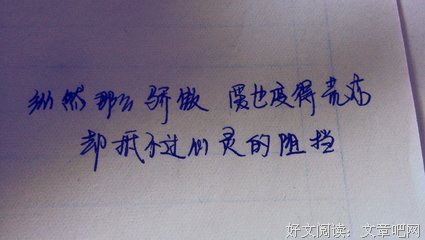 纵然那么骄傲 爱也变得荒芜
却抵不过心灵的阻挡
好文阅读:文章吧网